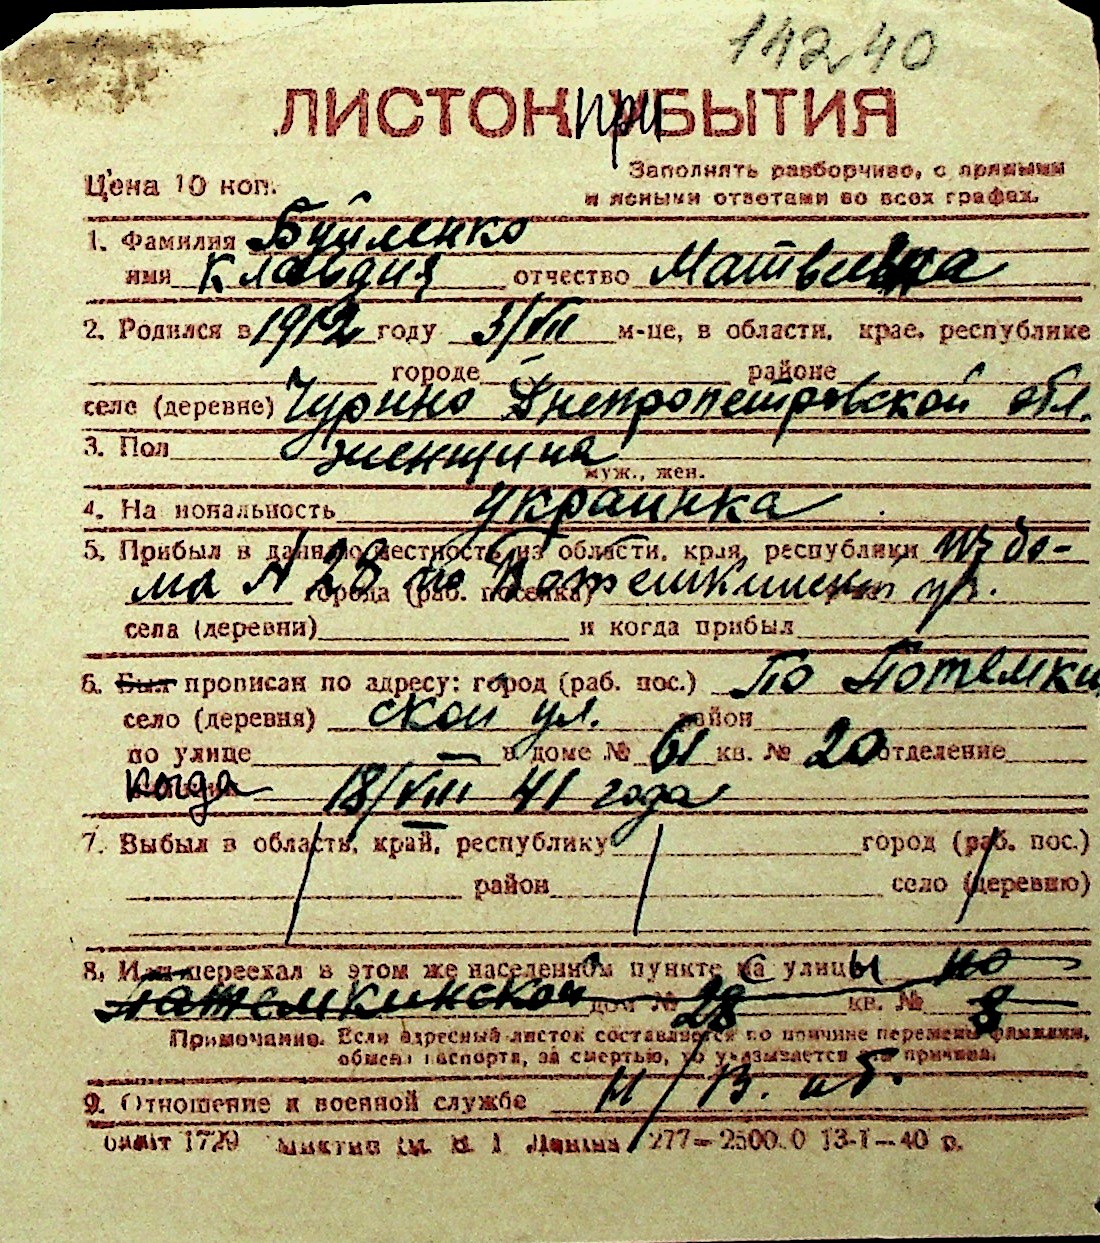 14240
ЛИСТОК ПРИБЫТИЯ
Цена 10 коп.
Заполнять разборчиво, с прямыми
и ясными ответами во всех графах.
1. Фамилия Буйленко
имя Клавдия отчество Матвеевна
2. Родился в 1912 году 3/VII м-це, в области, крае, республике
городе районе
селе (деревне) Чурино Днепропетровской обл.
3. Пол женщина
муж., жен.
4. Национальность украинка
5. Прибыл в данную местность из области, края, республики из до-
ма N 28 по Потемкинской ул.
города (раб. поселка)
села (деревни) и когда прибыл
6. Был прописан по адресу: город (раб. пос.) По Потемкин
село (деревня) ской ул. район
по улице — в доме № 61 кв. № 20 отделение
когда 18/VIII 41 года
7. Выбыл в область, край, республику город (раб. пос.)
район село (деревню)
8. Или переехал в этом же населенном пункте с улицы по
Потемкинской дом № 28 кв. № 8
Примечание. Если адресный листок составляется по причине перемены фамилии,
обмена паспорта, за смертью, то указывается эта причина.
9. Отношение к военной службе н/в. об.
1729 Ленина 277—2500.0 13-I—40 г.